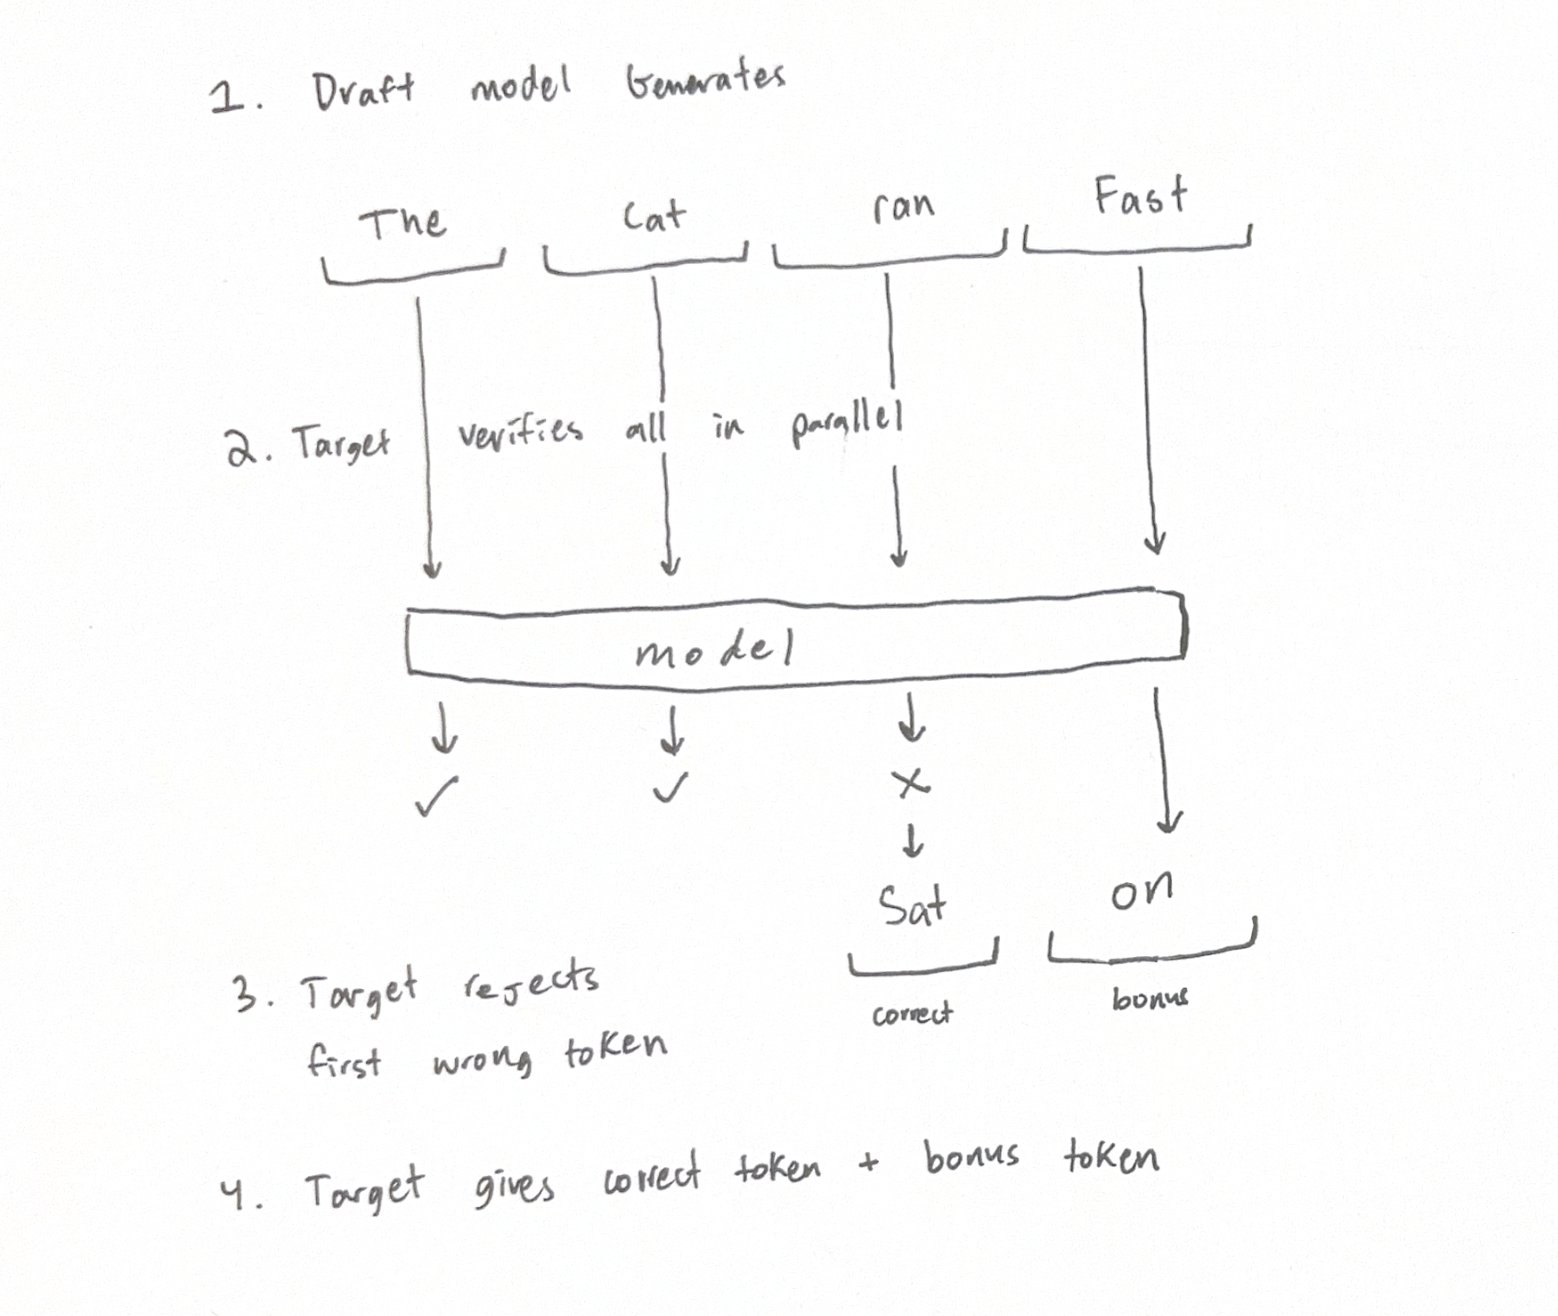 1. Draft model Generates
The Cat ran Fast
2. Target verifies all in parallel
model
✓ ✓ ×
Sat on
correct bonus
3. Target rejects
first wrong token
4. Target gives correct token + bonus token